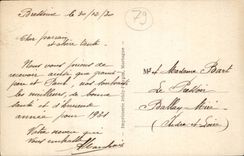 79
Bressuire le 30/12/20
Cher parrain
et chère tante
Nous vous prions de
recevoir ainsi que grand
père et Paul, nos souhaits
les meilleurs, de bonne
santé et d'heureuse
année pour 1921
Votre neveu qui
vous embrasse
Mr et Madame Biart
Le Pression
Ballan-Miré
(Indre et Loire)